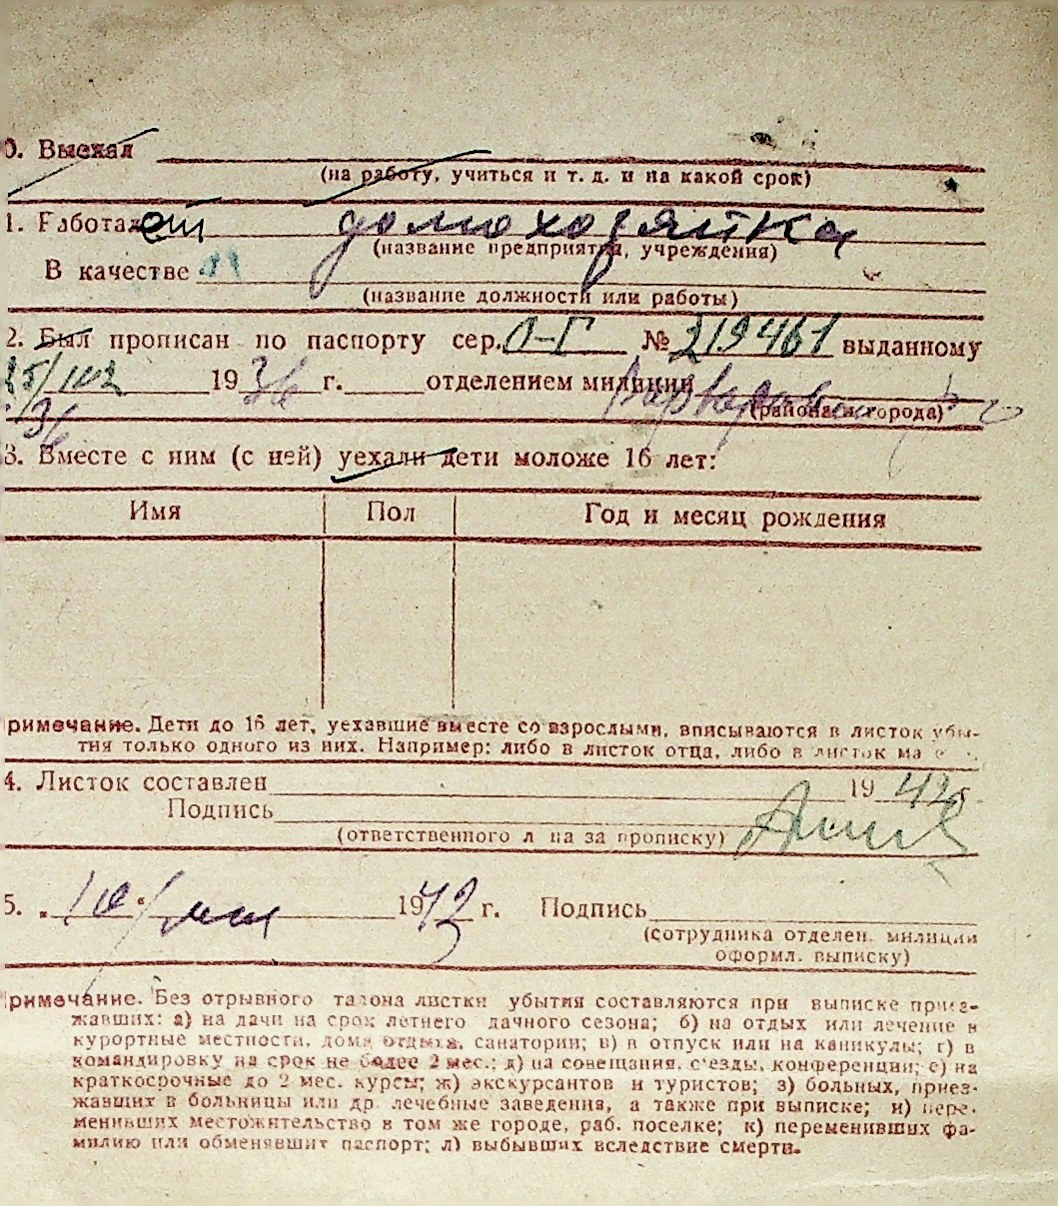 0. Выехал
(на работу, учиться и т. д. и на какой срок)
1. Работает домохозяйка
(название предприятия, учреждения)
В качестве
(название должности или работы)
2. Был прописан по паспорту сер. О-Г № 219461 выданному
1936 г. отделением милиции
(района и города)
3. Вместе с ним (с ней) уехали дети моложе 16 лет:
Имя Пол Год и месяц рождения
римечание. Дети до 16 лет, уехавшие вместе со взрослыми, вписываются в листок убы-
тия только одного из них. Например: либо в листок отца, либо в листок ма
4. Листок составлен 1942 г.
Подпись
(ответственного л ца за прописку)
5. 10 19 г. Подпись
(сотрудника отделен. милиции
оформл. выписку)
римечание. Без отрывного талона листки убытия составляются при выписке приез-
жавших: а) на дачи на срок летнего дачного сезона; б) на отдых или лечение в
курортные местности, дома отдыха, санатории; в) в отпуск или на каникулы; г) в
командировку на срок не более 2 мес.; д) на совещания, с'езды, конференции; е) на
краткосрочные до 2 мес. курсы; ж) экскурсантов и туристов; з) больных, приез-
жавших в больницы или др. лечебные заведения, а также при выписке; и) пере-
менивших местожительство в том же городе, раб. поселке; к) переменивших фа-
милию или обменявших паспорт; л) выбывших вследствие смерти.